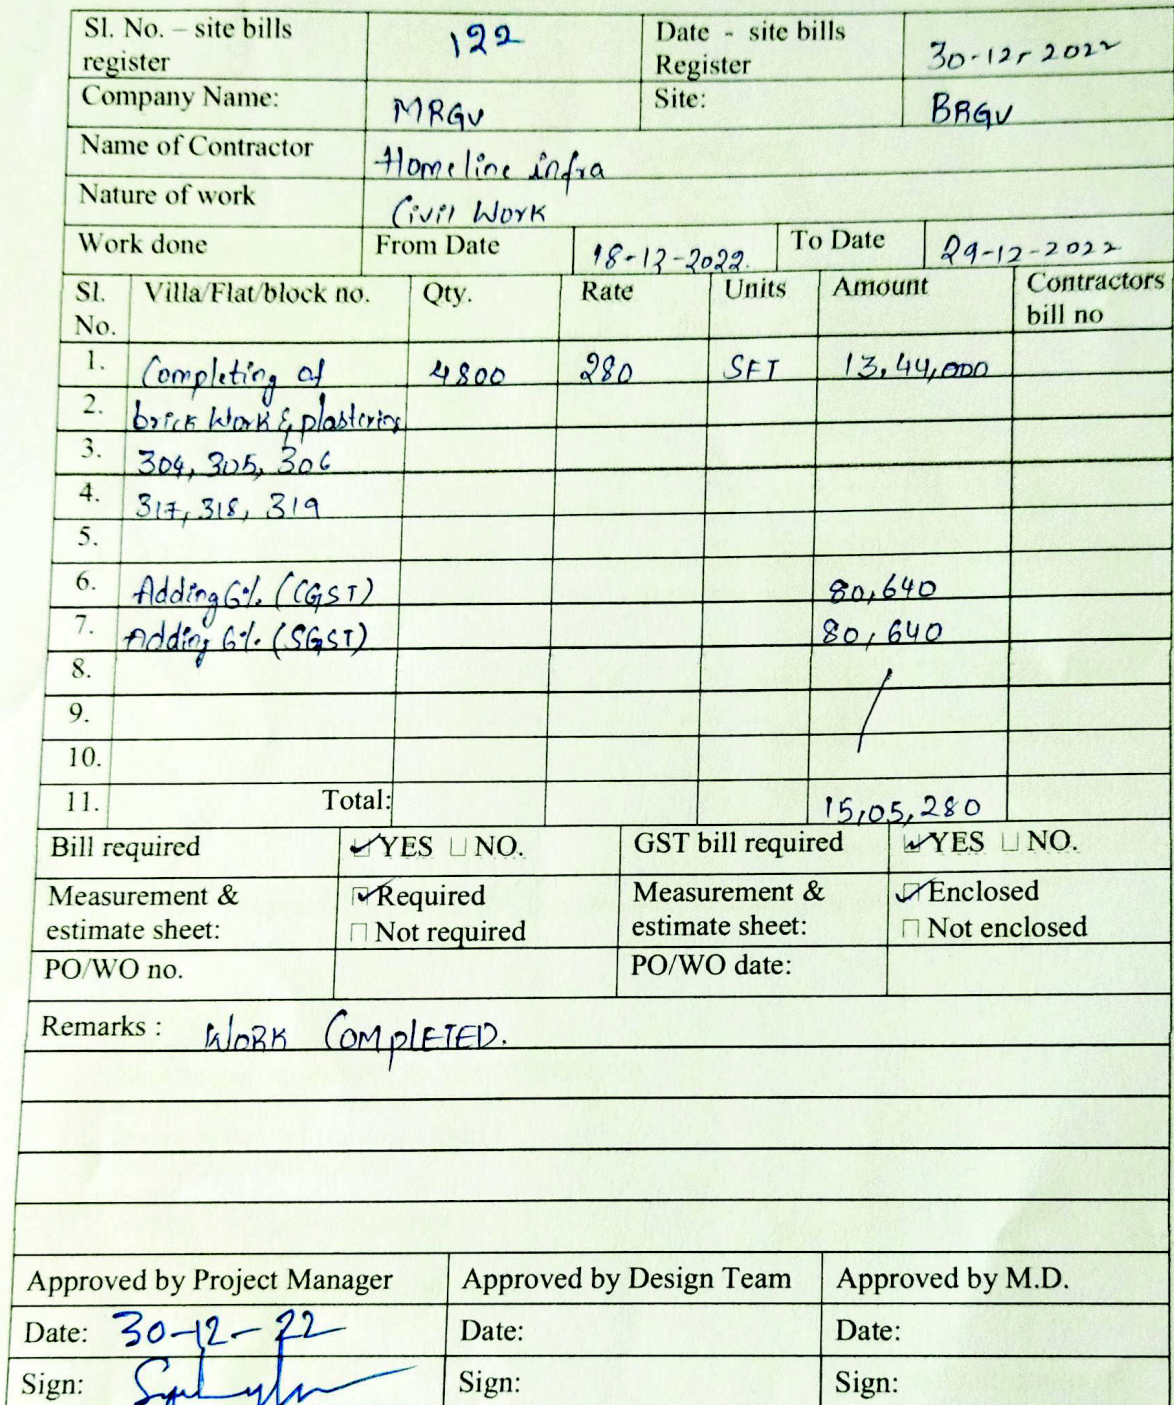 Sl. No. – site bills register 122 Date - site bills Register 30-12-2022
Company Name: MRGV Site: BRGV
Name of Contractor Homeline infra
Nature of work Civil Work
Work done From Date 18-12-2022. To Date 29-12-2022
Sl. No. Villa/Flat/block no. Qty. Rate Units Amount Contractors bill no
1. Completing of 4800 280 SFT 13,44,000
2. brick Work & plastering
3. 304, 305, 306
4. 317, 318, 319
5.
6. Adding 6% (CGST) 80,640
7. Adding 6% (SGST) 80,640
8.
9.
10.
11. Total: 15,05,280
Bill required YES NO. GST bill required YES NO.
Measurement & estimate sheet: Required Not required Measurement & estimate sheet: Enclosed Not enclosed
PO/WO no. PO/WO date:
Remarks : WORK COMPLETED.
Approved by Project Manager Approved by Design Team Approved by M.D.
Date: 30-12-22 Date: Date:
Sign: Sign: Sign: